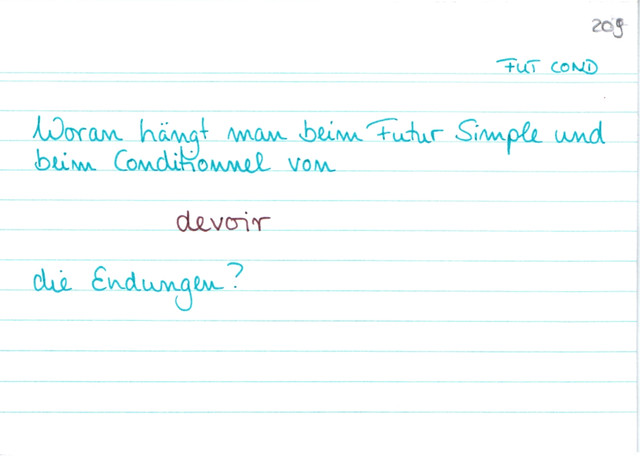 209
FUT COND
Woran hängt man beim Futur Simple und
beim Conditionnel von
devoir
die Endungen?